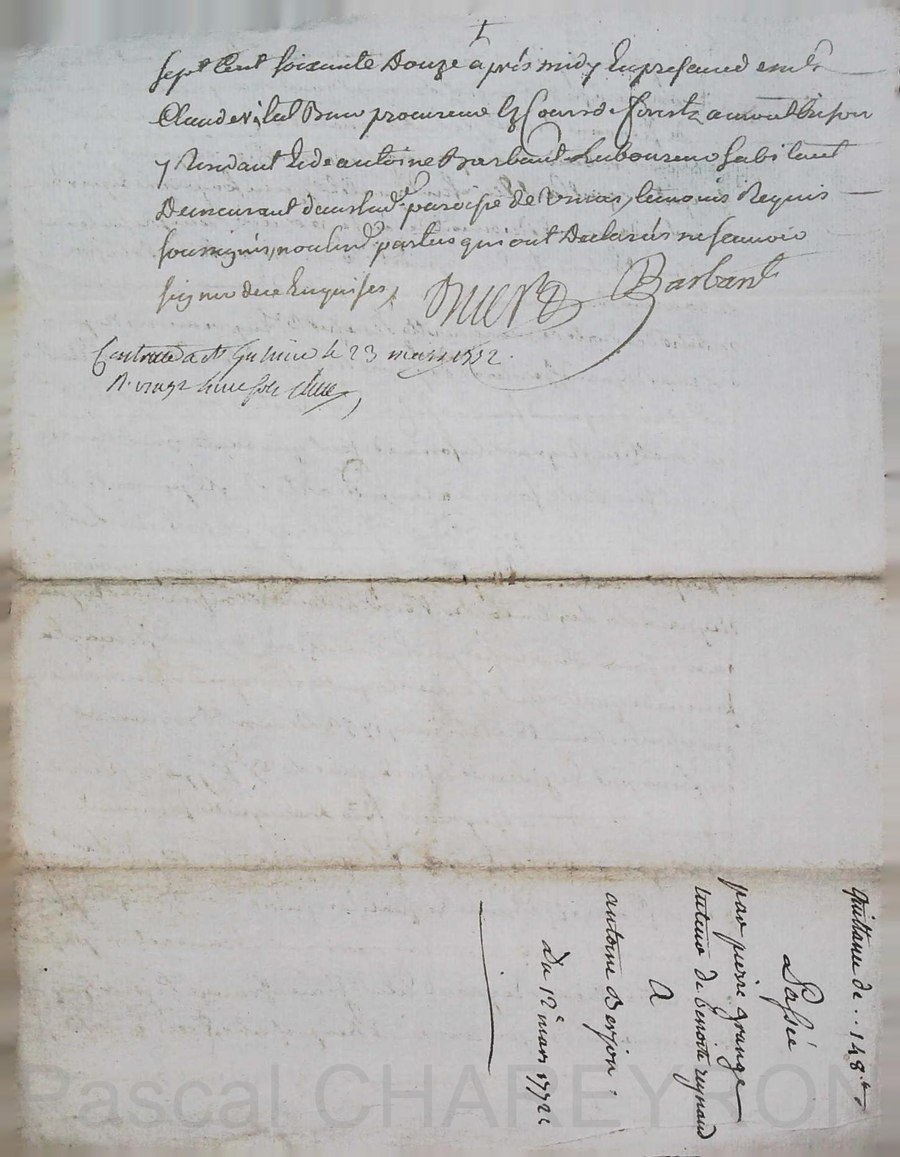 sept Cent soixante Douze après midy En presence de me
Claude vital Procureur Cours de forest a montbrison
y Residant Et de antoine Barbant Laboureur habitant
Demeurant dans lad. paroisse de temoins Requis
soussignés, non led. parties qui ont Declarés ne scavoir
signer de ce Enquises,
Barbant
Controllé a le 23 mars 1772.
R. vingt sols
Quittance de .. 148
Passée
par pierre grange
tuteur de benoite reynaud
A
antoine Berjon.
Du 12e mars 1772
Pascal CHAREYRON